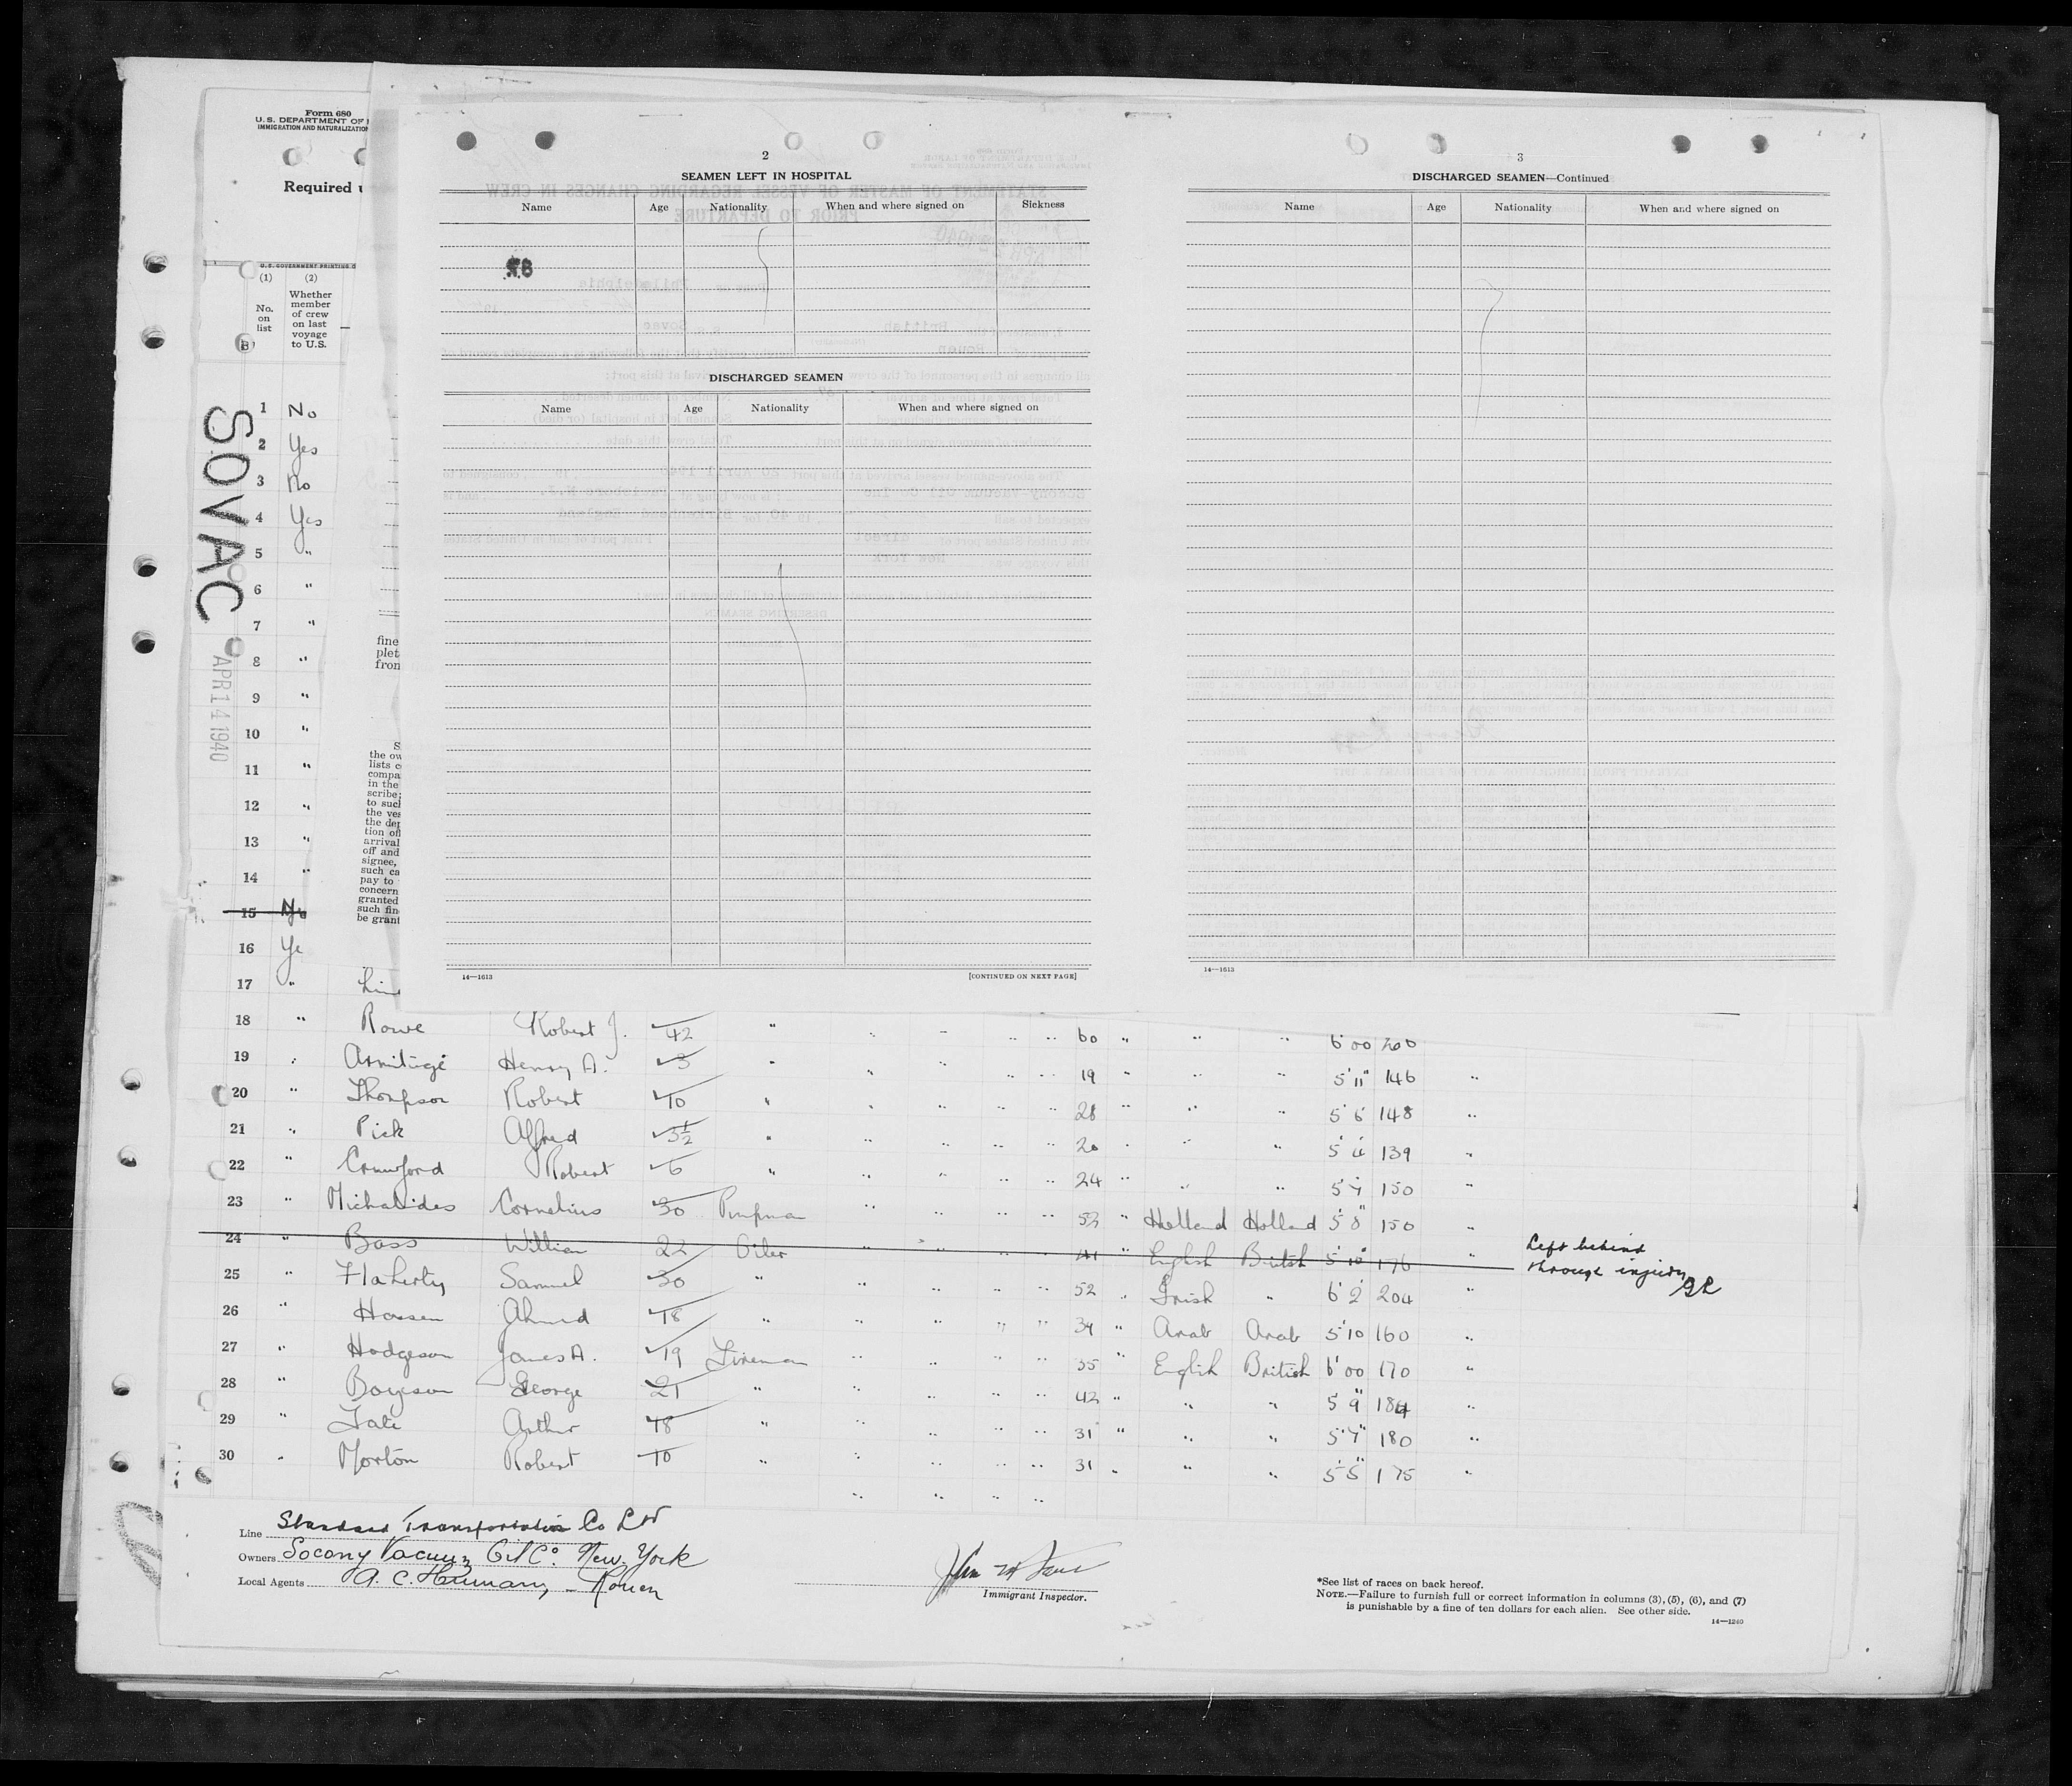 Form 680
U. S. DEPARTMENT OF
IMMIGRATION AND NATURALIZATION
Required
U. S. GOVERNMENT PRINTING
(1) (2)
No. on list
Whether member of crew on last voyage to U.S.
SOVAC
APR 14 1940
1 No
2 Yes
3 No
4 Yes
5 "
6 "
7 "
8 "
9 "
10 "
11 "
12 "
13 "
14 "
15
16 Ye
fine
plet
from
S
the ow
lists c
compa
in the
scribe
to such
the ves
the dep
tion off
arrival
off and
signee,
such ca
pay to
concern
granted
such fin
be grant
2
SEAMEN LEFT IN HOSPITAL
Name Age Nationality When and where signed on Sickness
DISCHARGED SEAMEN
Name Age Nationality When and where signed on
14—1613 [CONTINUED ON NEXT PAGE]
3
DISCHARGED SEAMEN—Continued
Name Age Nationality When and where signed on
14—1613
17 "
18 " Rowe Robert J. 42 " " " " " 60 " " " 6'00 200
19 " Armitage Henry A. 3 " " " " " 19 " " " 5'11" 146 "
20 " Thompson Robert 10 " " " " " 28 " " " 5'6 148 "
21 " Pick Alfred 3½ " " " " " 20 " " " 5'4 139 "
22 " Crawford Robert 6 " " " " " 24 " " " 5'7 150 "
23 " Michalides Cornelius 30 Pumpman " " " " 52 " Holland Holland 5'8" 150 "
24 " Bass William 22 Oiler " " " " 41 " English British 5'10" 176 " Left behind
through injury
25 " Flaherty Samuel 30 " " " " " 52 " Irish " 6'2 204 "
26 " Hassen Ahmed 18 " " " " " 34 " Arab Arab 5'10 160 "
27 " Hodgeson James A. 19 Fireman " " " " 35 " English British 6'00 170 "
28 " Boyeson George 21 " " " " " 42 " " " 5'9" 184 "
29 " Tate Arthur 18 " " " " " 31 " " " 5'7" 180 "
30 " Morton Robert 10 " " " " " 31 " " " 5'5" 175 "
Line Standard Transportation Co Ltd
Owners Socony Vacuum Oil Co. New York
Local Agents A. C. — Rouen
Immigrant Inspector.
*See list of races on back hereof.
NOTE.—Failure to furnish full or correct information in columns (3), (5), (6), and (7)
is punishable by a fine of ten dollars for each alien. See other side.
14—1240